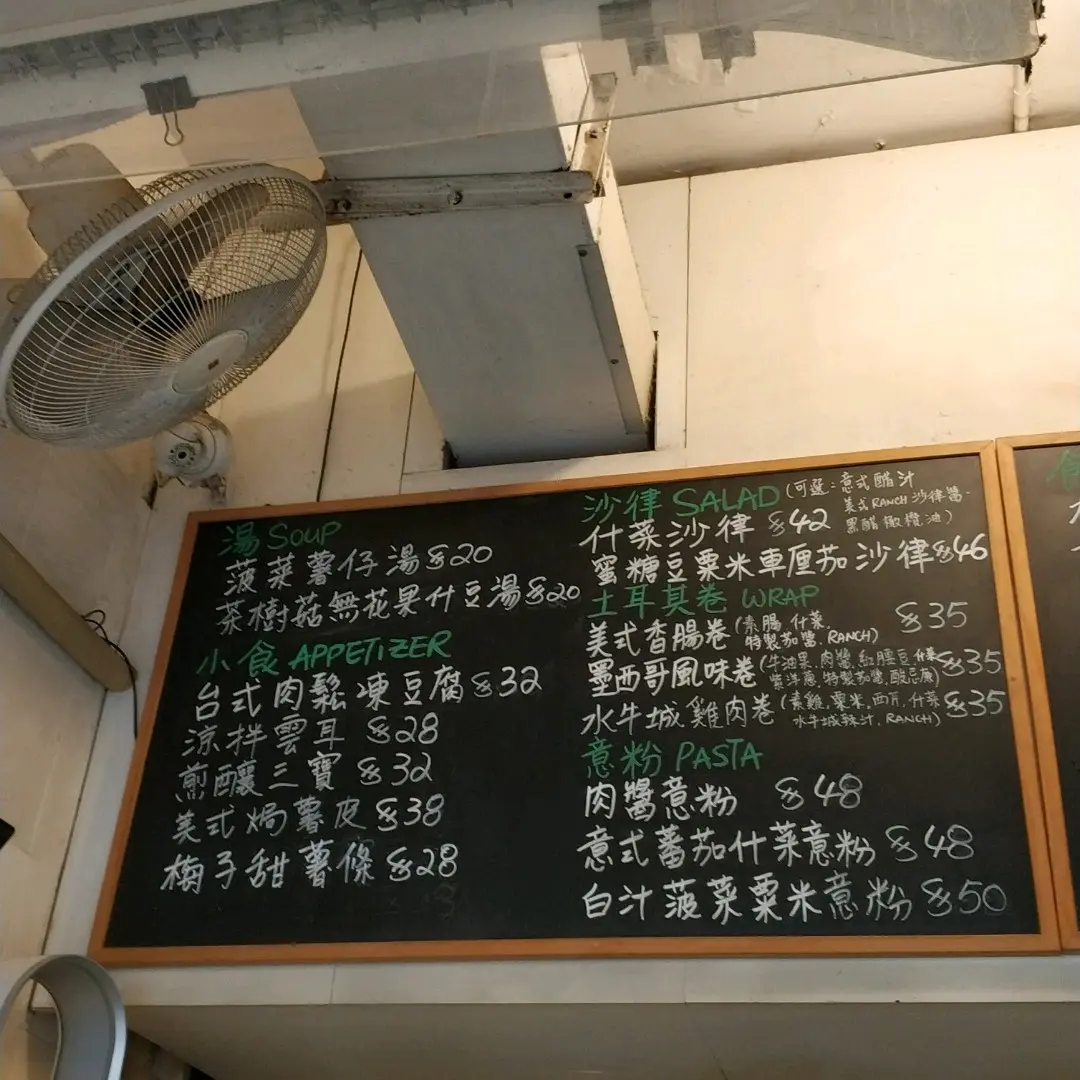 湯 Soup
菠菜薯仔湯 $20
茶樹菇無花果什豆湯 $20
小食 APPETiZER
台式肉鬆凍豆腐 $32
涼拌雲耳 $28
煎釀三寶 $32
美式焗薯皮 $38
梅子甜薯條 $28
沙律 SALAD (可選:意式醋汁
美式 RANCH 沙律醬.
黑醋橄欖油)
什菜沙律 $42
蜜糖豆粟米車厘茄沙律 $46
土耳其卷 WRAP
美式香腸卷 (素腸, 什菜, $35
特製茄醬, RANCH)
墨西哥風味卷 (牛油果, 肉醬, 紅腰豆, 什菜 $35
紫洋蔥, 特製茄醬, 酸忌廉)
水牛城雞肉卷 (素雞, 粟米, 西芹, 什菜 $35
水牛城辣汁, RANCH)
意粉 PASTA
肉醬意粉 $48
意式蕃茄什菜意粉 $48
白汁菠菜粟米意粉 $50